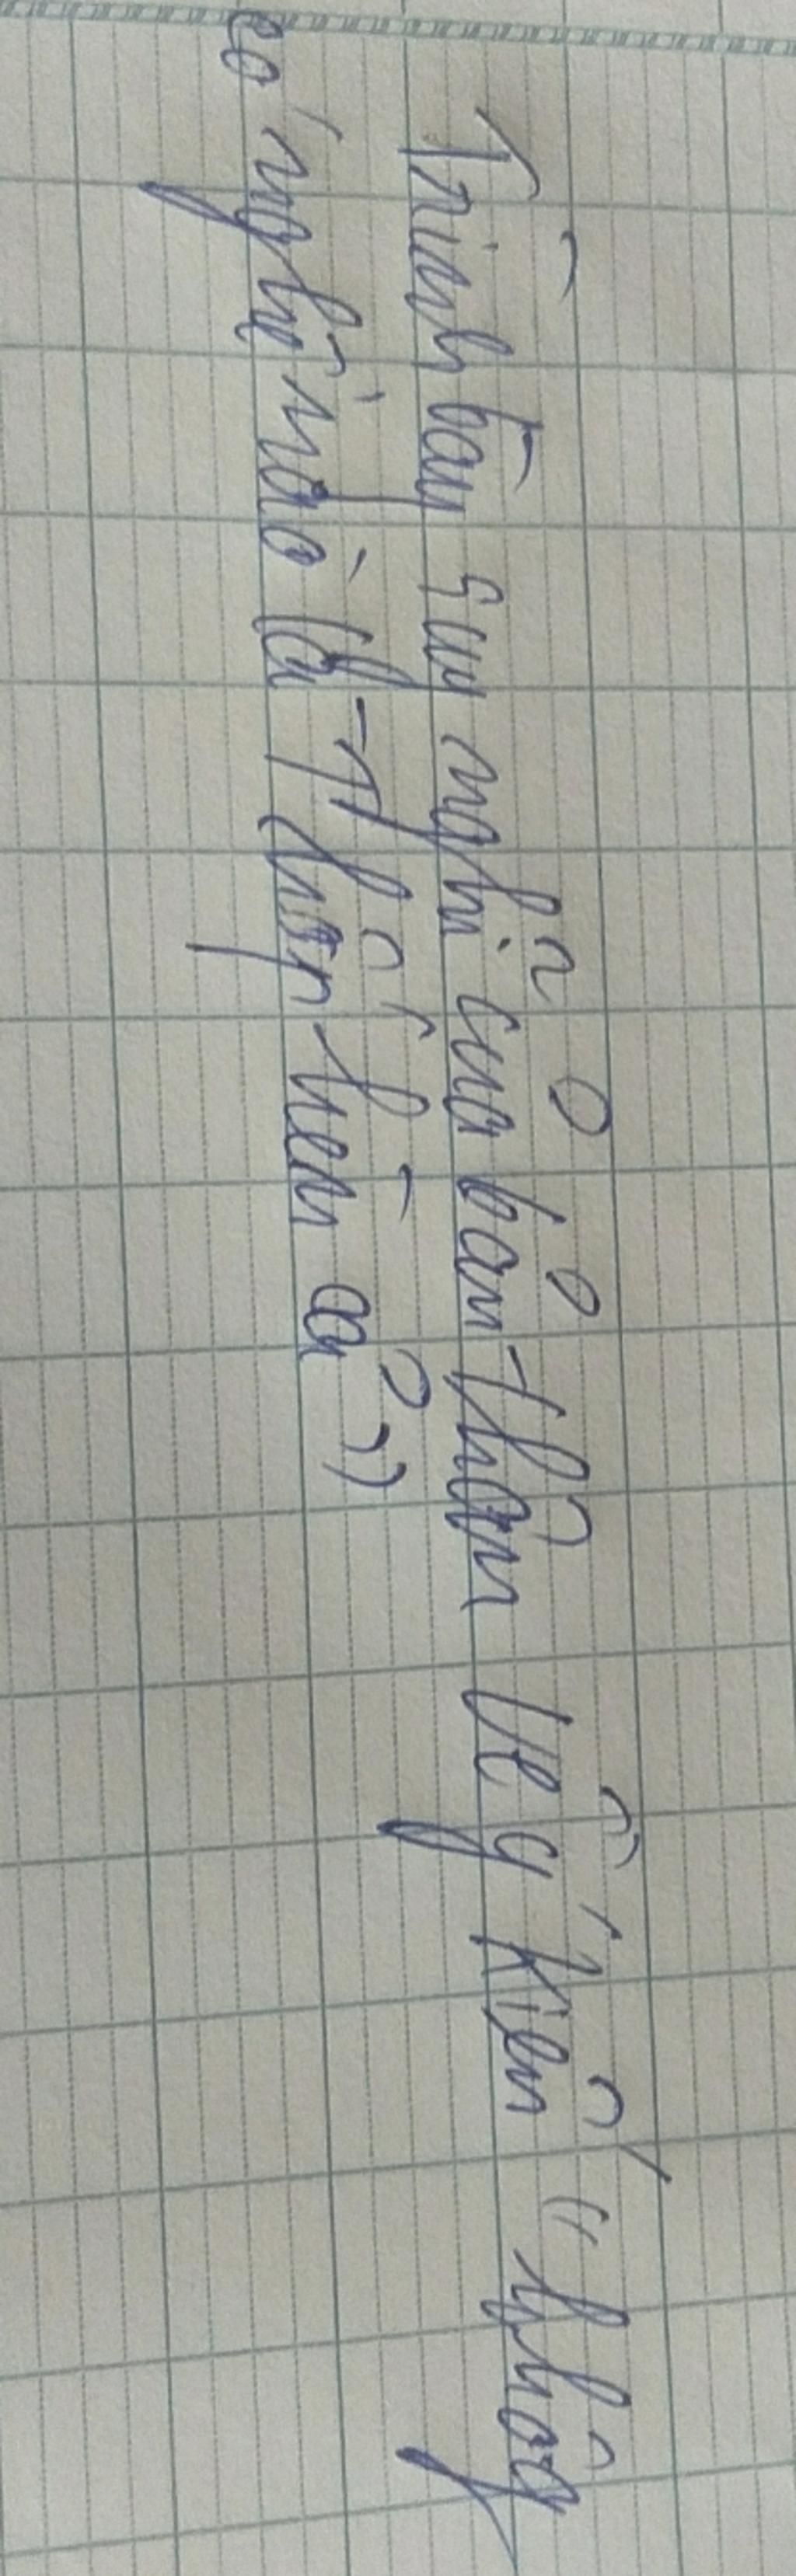 Trình bày suy nghĩ của bản thân về ý kiến "không
có nghề nào là thấp hèn cả"